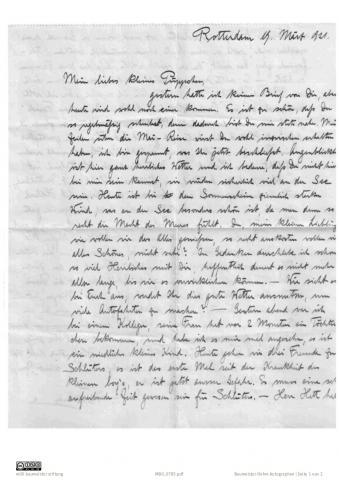 Rotterdam 19. März 1921.
Mein liebes kleines Püppchen,
gestern hatte ich keinen Brief von Dir, aber
heute wird wohl noch einer kommen. Es ist zu schön, daß Du
so regelmäßig schreibst, denn dadurch bist Du mir stets nahe. Meine
Zeilen über die Mai-Reise wirst Du wohl inzwischen erhalten
haben, ich bin gespannt was Ihr jetzt beschließt. Augenblicklich
ist hier ganz herrliches Wetter und ich bedaure, daß Du nicht hier
bei mir sein kannst, wir würden sicherlich viel an der See
sein. Heute ist bei dem Sonnenschein ziemlich starker
Wind, was an der See besonders schön ist da man dann so
recht die Macht des Meeres fühlt. Du, mein kleiner Liebling
wie wollen wir das alles genießen, so recht auskosten wollen wir
alles Schöne, nicht wahr? In Gedanken durchlebe ich schon
so viel Herrliches mit Dir, hoffentlich dauert es nicht mehr
allzu lange bis wir es verwirklichen können. — Wie sieht es
bei Euch aus, werdet Ihr das gute Wetter ausnutzen, um
viele Autofahrten zu machen? — Gestern abend war ich
bei einem Kollegen, seine Frau hat vor 2 Monaten ein Töchter-
chen bekommen, und habe ich es mir mal angesehen, es ist
ein niedliches kleines Kind. Heute gehen wir drei Freunde zu
Schlüters, es ist das erste Mal seit der Krankheit des
kleinen, er ist jetzt ausser Gefahr. Es muss eine sehr
aufreibende Zeit gewesen sein für Schlüters. — Herr Hitt hat
willi baumeister stiftung
Baumeister-Nehm Autographen | Seite 1 von 2